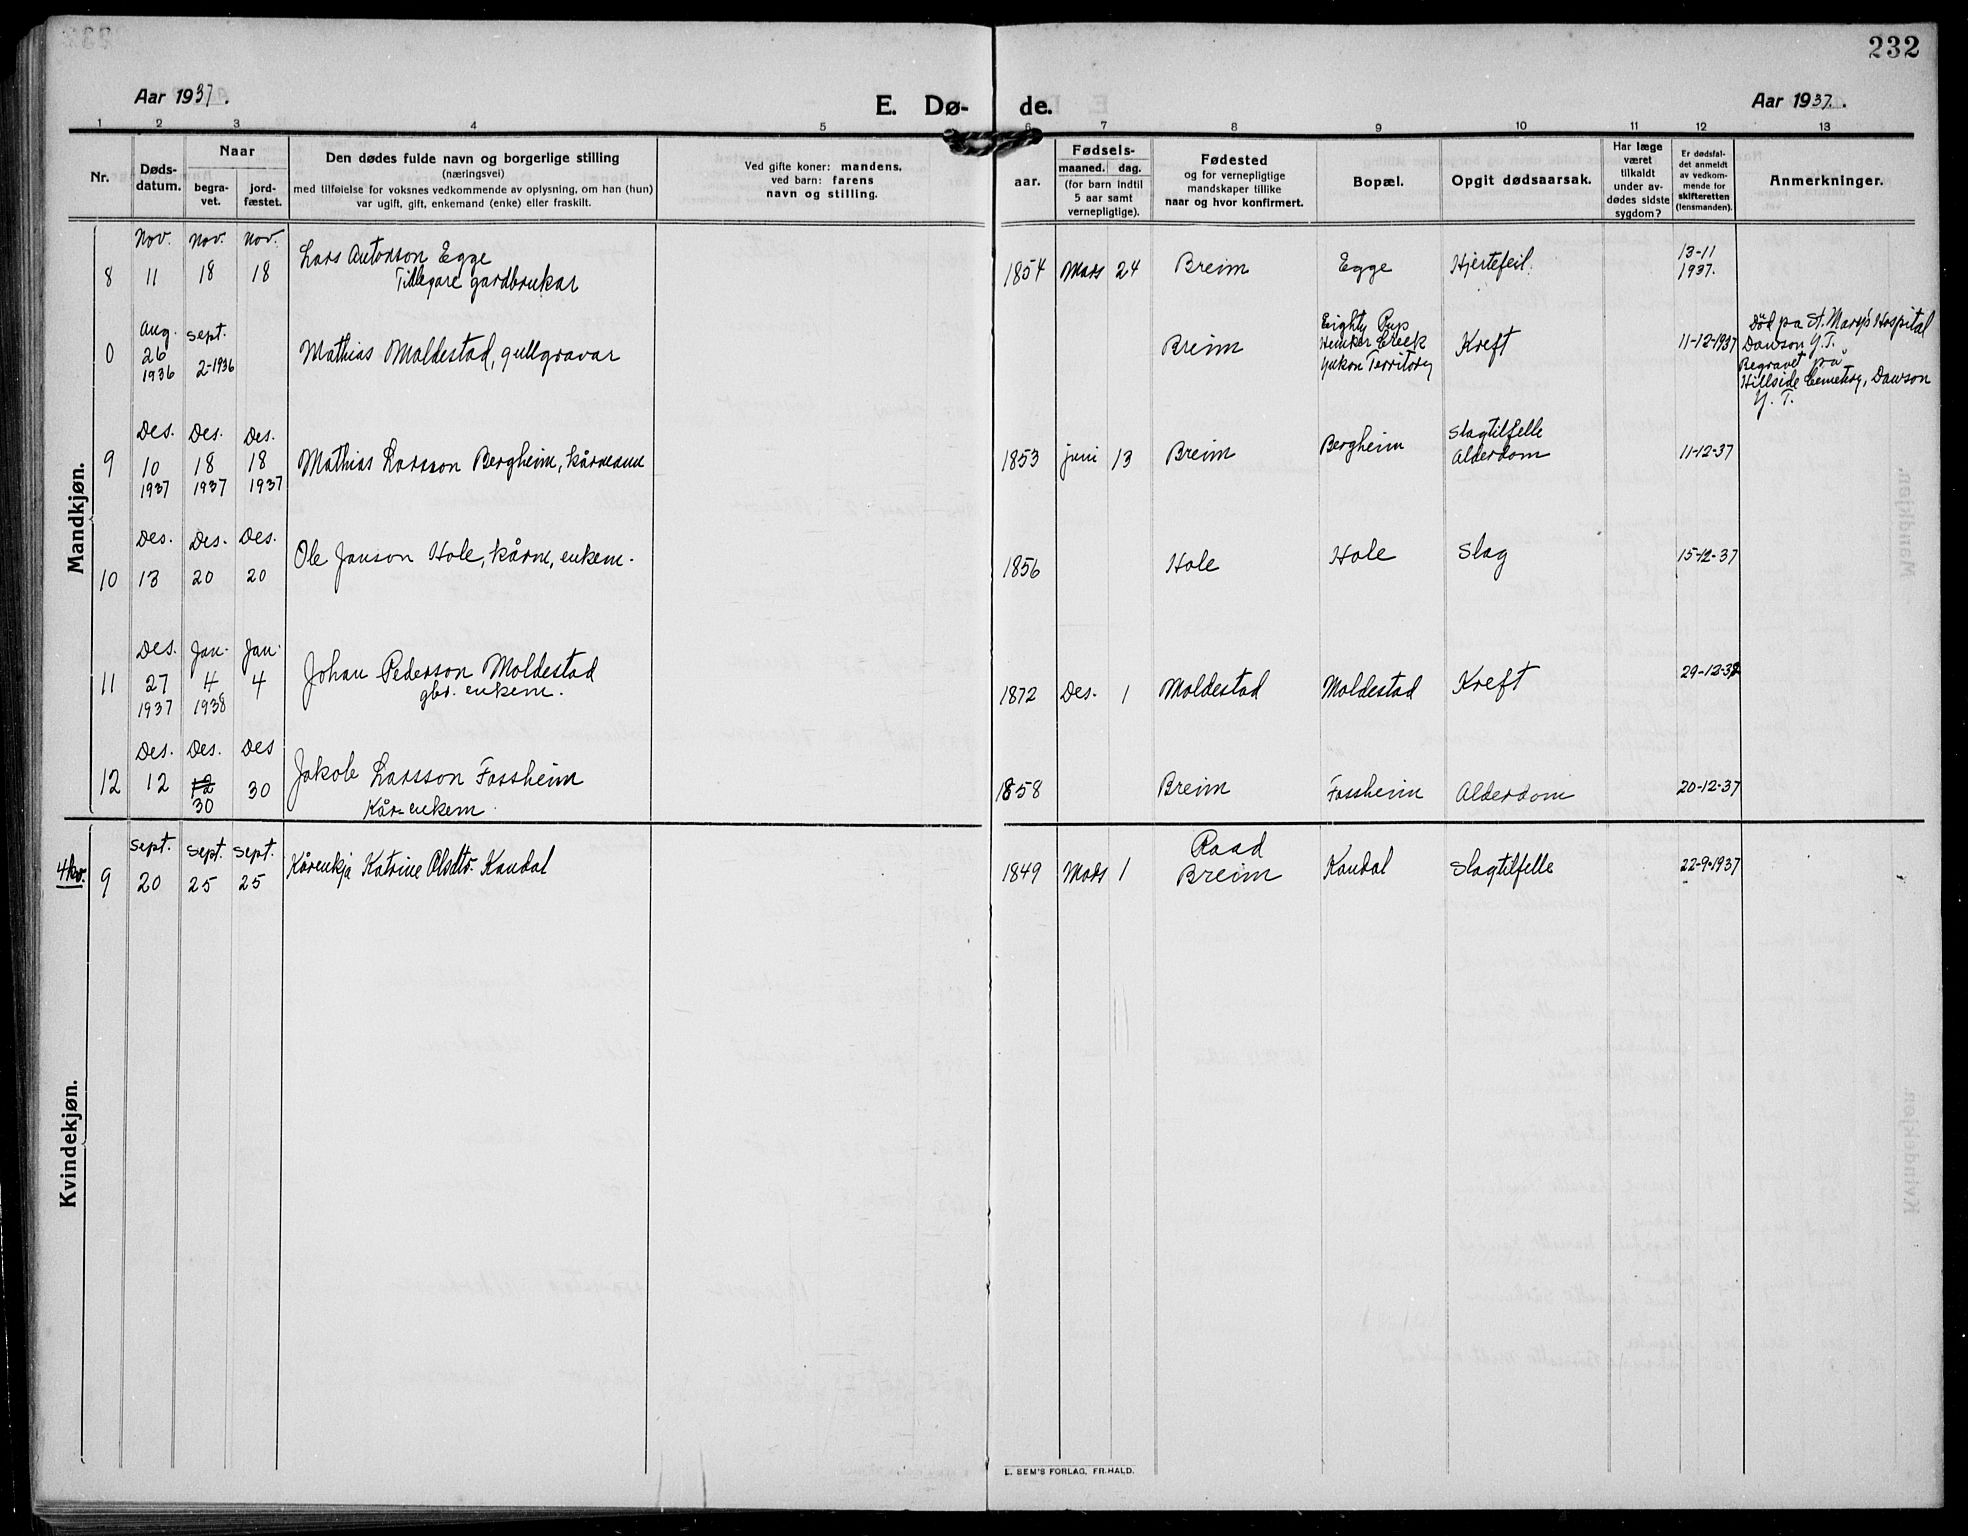 232
Aar 1937.
E. Dø- de.
Aar 1937.
1 2 3 4 5 6 7 8 9 10 11 12 13
Nr.
Døds-
datum.
Naar
begra-
vet.
jord-
fæstet.
Den dødes fulde navn og borgerlige stilling
(næringsvei)
med tilføielse for voksnes vedkommende av oplysning, om han (hun)
var ugift, gift, enkemand (enke) eller fraskilt.
Ved gifte koner: mandens,
ved barn: farens
navn og stilling.
aar.
Fødsels-
maaned. dag.
(for barn indtil
5 aar samt
vernepligtige).
Fødested
og for vernepligtige
mandskaper tillike
naar og hvor konfirmert.
Bopæl.
Opgit dødsaarsak.
Har læge
været
tilkaldt
under av-
dødes sidste
sygdom?
Er dødsfal-
det anmeldt
av vedkom-
mende for
skifteretten
(lensmanden).
Anmerkninger.
Mandkjøn.
Nov. Nov. Nov.
8 11 18 18
Lars Antonson Egge
Tidlegare gardbrukar
1854 Mars 24 Breim Egge Hjertefeil.
13-11
1937.
Aug. Sept.
0 26
1936 2-1936
Mathias Moldestad, gullgravar
Breim
Eighty Pup
Hunker Creek
Yukon Territory
Kreft
11-12-1937
Død pa St. Mary's Hospital
Dawson Y.T.
Begravet på
Hillside Cemetery, Dawson
Y. T.
Des. Des. Des.
9 10 18 18
1937 1937 1937
Mathias Larsson Bergheim, kårmann
1853 juni 13 Breim Bergheim
Slagtilfelle
Alderdom
11-12-37
Des. Des. Des.
10 13 20 20
Ole Janson Hole, kårm, enkem.
1856 Hole Hole Slag 15-12-37
Des. Jan. Jan.
11 27 4 4
1937 1938
Johan Pederson Moldestad
gbr. enkem.
1872 Des. 1 Moldestad Moldestad Kreft 29-12-37
Des. Des. Des
12 12 12 30
30
Jakob Larsson Fossheim
Kår- enkem.
1858 Breim Fossheim Alderdom 20-12-37
Kvindekjøn.
4 kv.
Sept. Sept. Sept.
9 20 25 25
Kårenkja Katrine Olsdtr. Kandal
1849 Mars 1
Raad
Breim
Kandal Slagtilfelle 22-9-1937
L. SEM'S FORLAG, FR.HALD.